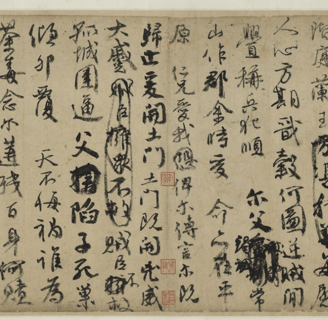 階庭蘭玉
人心方期戩穀何圖逆賊閒
釁稱兵犯順爾父竭誠常
山作郡余時受命亦在平
原仁兄愛我俾爾傳言爾既
歸止爰開土門土門既開凶威
大蹙賊臣擁眾不救賊臣不救
孤城圍逼父陷子死巢
傾卵覆天不悔禍誰為
荼毒念爾遘殘百身何贖